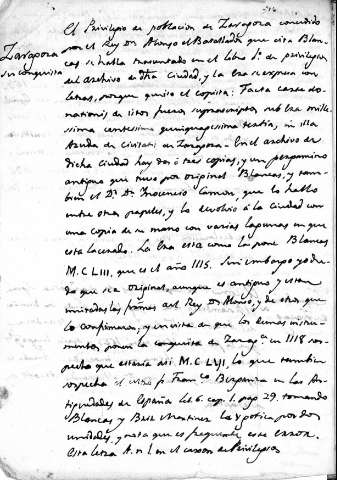 Zaragoza
su conquista
El Privilegio de poblacion de Zaragoza concedido
por el Rey Dn Alonso el Batallador que cita Blan-
cas se halla trasuntado en el libro 1º de privilegios
del archivo de dha Ciudad, y la Era se expresa con
letras, porque quiso el copista: Facta carta do-
nationis de istos fueros suprascriptos sub Era mille-
sima centesima quinquagesima tertia, in illa
Azuda de civitate de Zaragoza. En el archivo de
dicha ciudad hay dos ó tres copias, y un pergamino
antiguo que tuvo por original Blancas, y tam-
bien el Dr Dn Inocencio Camon, que lo halló
entre otros papeles, y lo devolvió á la Ciudad con
una copia de su mano con varias lagunas en que
esta lacerado. La Era esta como la pone Blancas
M.C.LIII, que es el año 1115. Sin embargo yo du-
do que sea original, aunque es antiguo y estan
imitadas las firmas del Rey Dn Alonso, y de otros que
lo confirmaron, y en vista de que los demas instru-
mentos ponen la conquista de Zaragza en 1118 sos-
pecho que estaria alli M.C.LVI, lo que tambien
sospecha el P. Franco Berganza en las An-
tiguedades de España lib 6. cap. 1. pag. 29. tomando
Blancas y Briz Martinez la V gotica por dos
unidades, y nota que es frequente este error.
Esta letra A. n 1. en el caxon de Privilegios